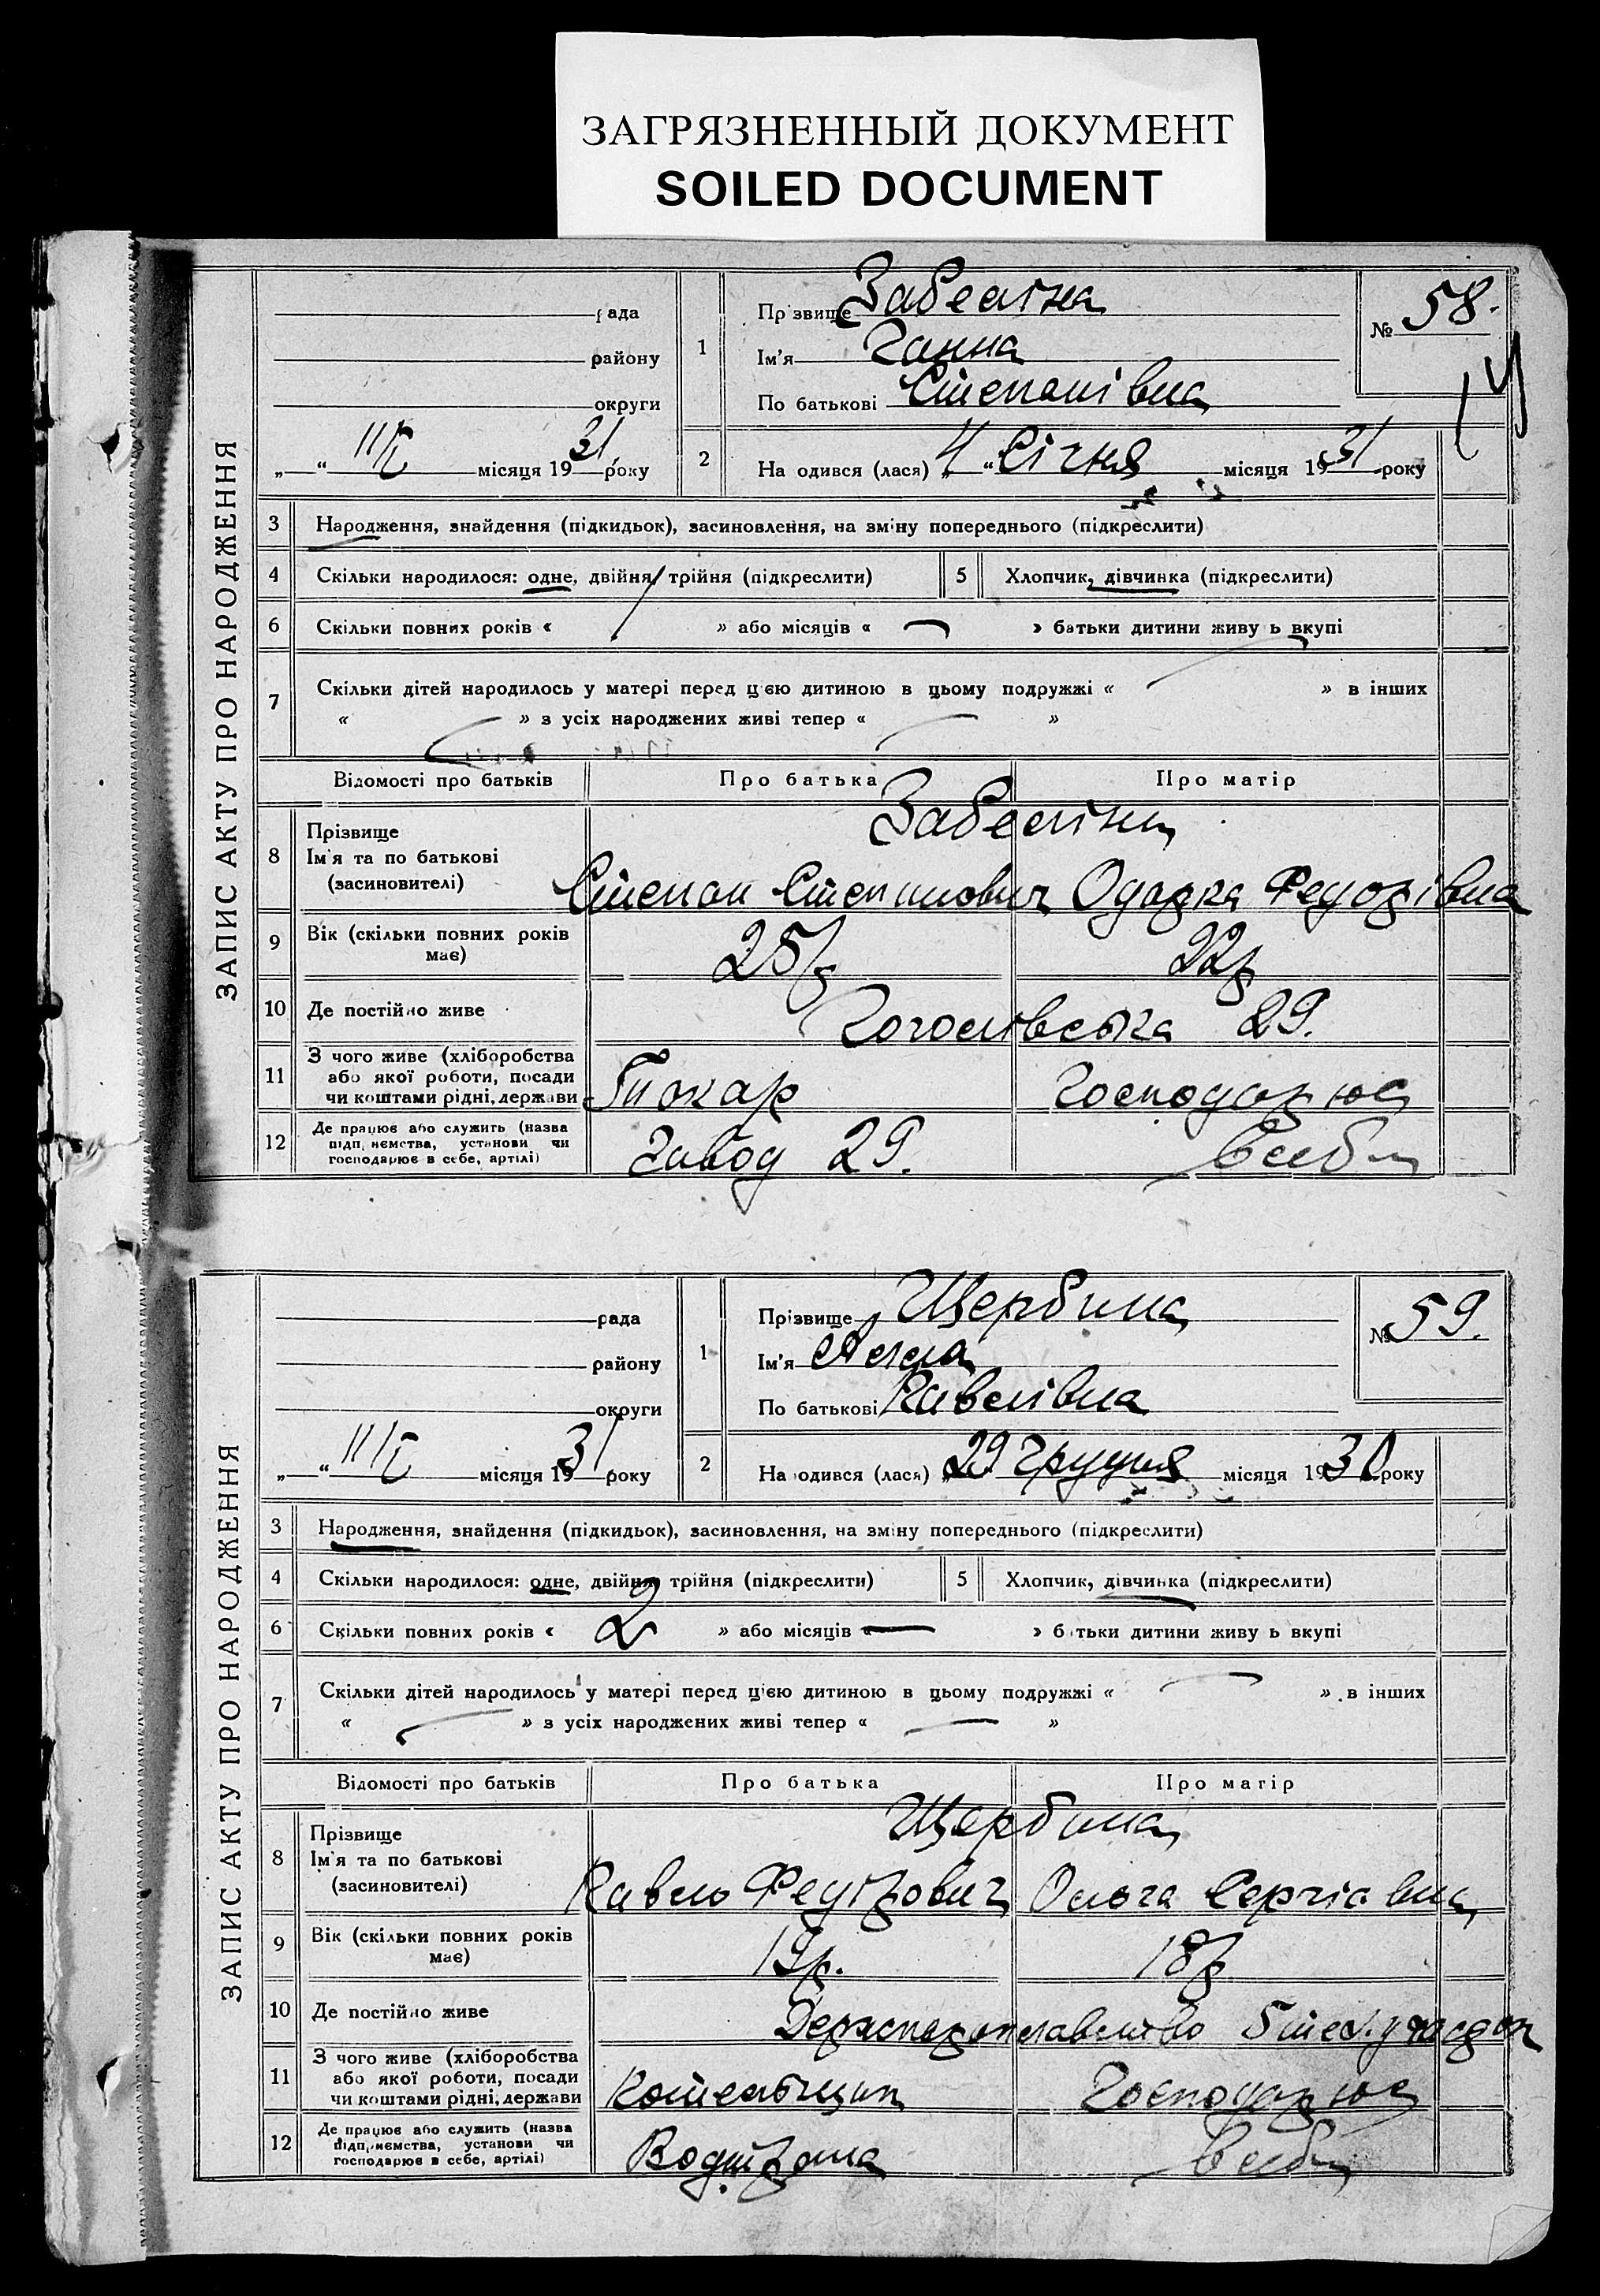 ЗАГРЯЗНЕННЫЙ ДОКУМЕНТ
SOILED DOCUMENT
ЗАПИС АКТУ ПРО НАРОДЖЕННЯ
рада
району
округи
„ “ 11/I місяця 1931 року
1
Прізвище Забеліна
Ім'я Ганна
По батькові Степанівна
№ 58.
2
Народився (лася) „4 “ Січня місяця 1931 року
3 Народження, знайдення (підкидьок), засиновлення, на зміну попереднього (підкреслити)
4 Скільки народилося: одне, двійня, трійня (підкреслити)
5 Хлопчик, дівчинка (підкреслити)
6 Скільки повних років « » або місяців « » батьки дитини живуть вкупі
7 Скільки дітей народилось у матері перед цією дитиною в цьому подружжі « » в інших
« » з усіх народжених живі тепер « »
Відомості про батьків Про батька Про матір
8 Прізвище
Ім'я та по батькові
(засиновителі)
Забеліни
Степан Степанович Одарка Федорівна
9 Вік (скільки повних років має) 25р 22р
10 Де постійно живе Гоголівська 29.
11 З чого живе (хліборобства
або якої роботи, посади
чи коштами рідні, держави
Токар Господарює
12 Де працює або служить (назва
підприємства, установи чи
господарює в себе, артілі)
Завод 29. в себе
ЗАПИС АКТУ ПРО НАРОДЖЕННЯ
рада
району
округи
„ “ 11/I місяця 1931 року
1
Прізвище Щербина
Ім'я
По батькові Павлівна
№ 59.
2
Народився (лася) „29 Грудня місяця 1930 року
3 Народження, знайдення (підкидьок), засиновлення, на зміну попереднього (підкреслити)
4 Скільки народилося: одне, двійня, трійня (підкреслити)
5 Хлопчик, дівчинка (підкреслити)
6 Скільки повних років « 2 » або місяців « — » батьки дитини живуть вкупі
7 Скільки дітей народилось у матері перед цією дитиною в цьому подружжі « » в інших
« » з усіх народжених живі тепер « »
Відомості про батьків Про батька Про матір
8 Прізвище
Ім'я та по батькові
(засиновителі)
Щербина
Павло Федорович Ольга Сергіївна
9 Вік (скільки повних років має) 19р. 18р
10 Де постійно живе
11 З чого живе (хліборобства
або якої роботи, посади
чи коштами рідні, держави
Котельщик Господарює
12 Де працює або служить (назва
підприємства, установи чи
господарює в себе, артілі)
в себе